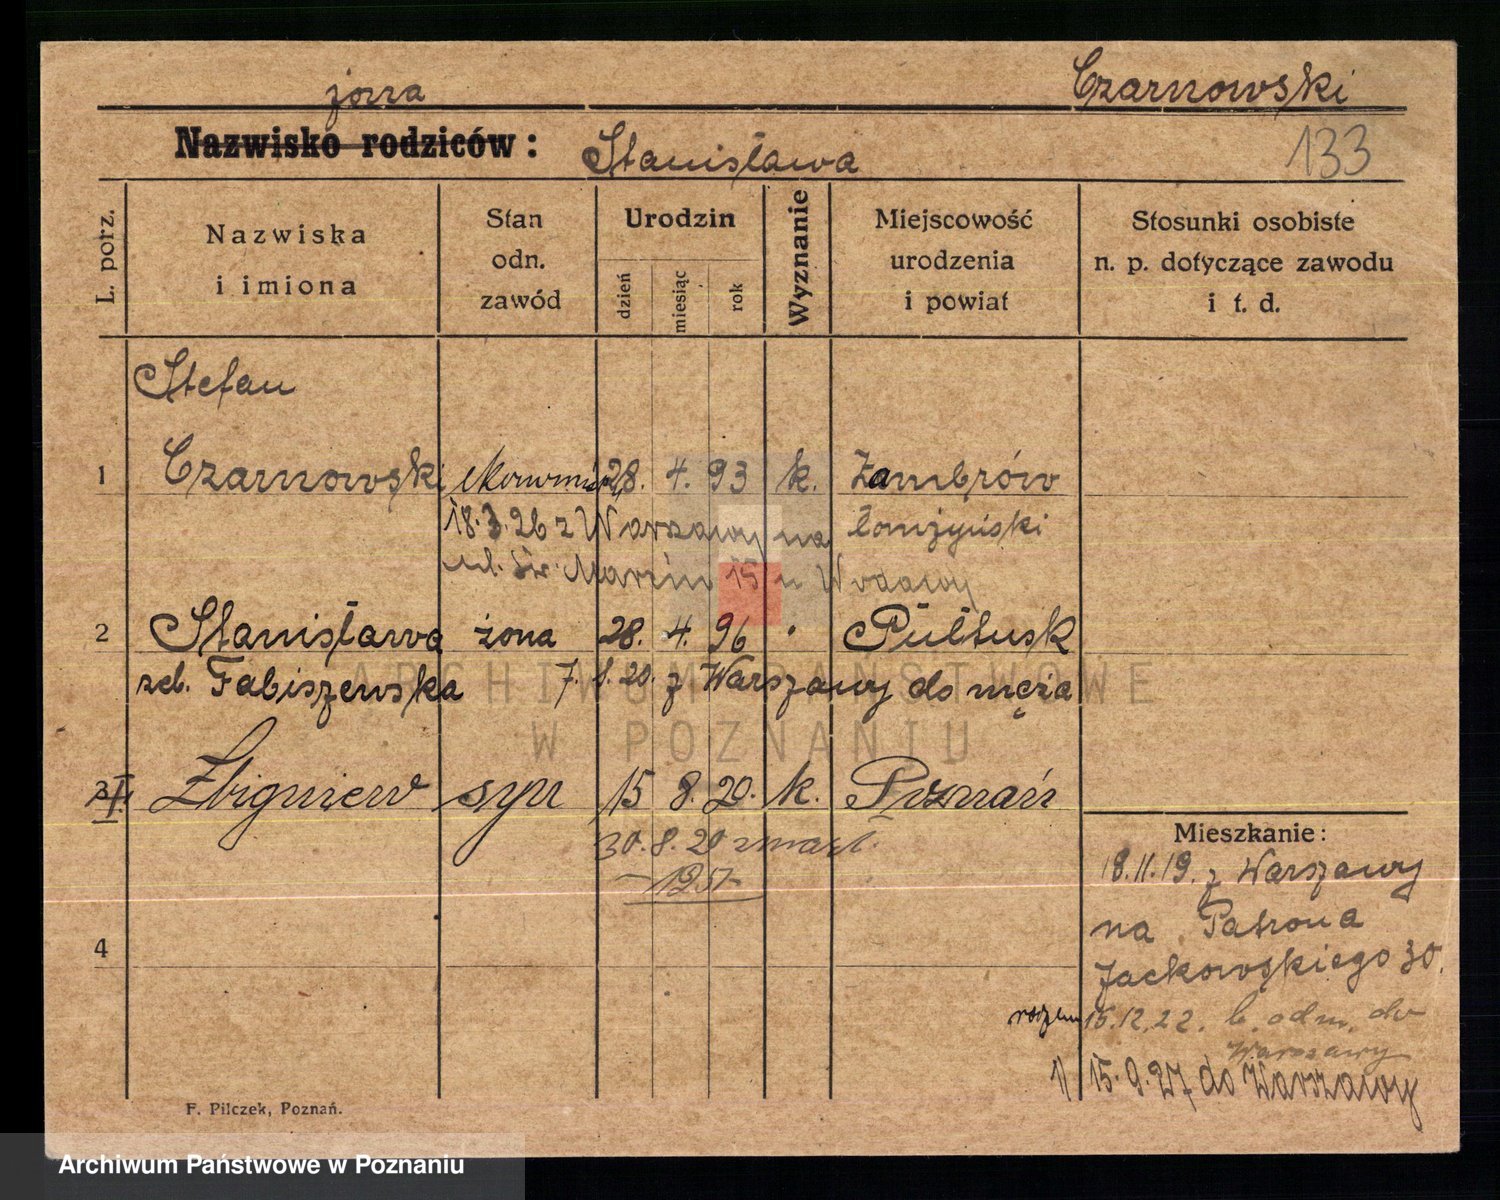 żona Czarnowski
Nazwisko rodziców: Stanisława 133
L. porz.
Nazwiska i imiona
Stan odn. zawód
Urodzin
dzień miesiąc rok
Wyznanie
Miejscowość urodzenia i powiat
Stosunki osobiste n. p. dotyczące zawodu i t. d.
Stefan
1 Czarnowski 28. 4. 93 k. Zambrów
18.3.26 z Warszawy na Łomżyński
ul. św. Marcin 15 u
2 Stanisława żona 28. 4. 96 " Pułtusk
Fabiszewska 7. 8. 20. z Warszawy do męża
3 I. Zbigniew syn 15 8. 20. k. Poznań
30. 8. 20 zmarł.
4
Mieszkanie:
18.11.19. z Warszawy
na Patrona
Jackowskiego 30.
razem 15.12.22. b. odm. do
Warszawy
1/ 15.9.27 do Warszawy
F. Pilczek, Poznań.
ARCHIWUM PAŃSTWOWE
W POZNANIU
Archiwum Państwowe w Poznaniu